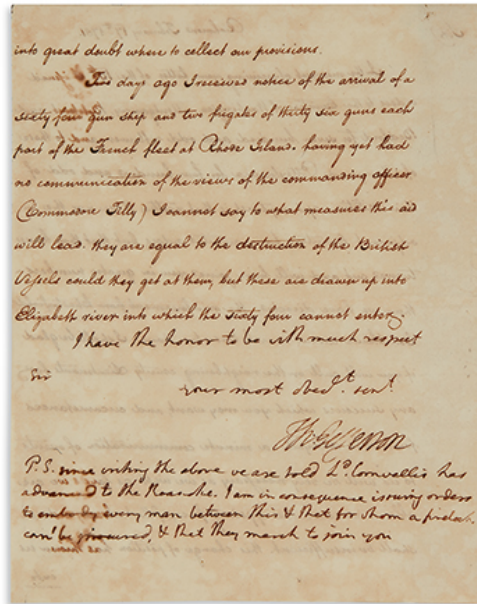 into great doubt where to collect our provisions.
Two days ago I received notice of the arrival of a
sixty four gun ship and two frigates of thirty six guns each
part of the French fleet at Rhode Island. having yet had
no communication of the views of the commanding officer
(Commodore Tilly) I cannot say to what measures this aid
will lead. they are equal to the destruction of the British
Vessels could they get at them, but these are drawn up into
Elizabeth river into which the sixty four cannot enter.
I have the honor to be with much respect
Sir
your most obedt. servt.
Th Jefferson
P.S. since writing the above we are told Ld. Cornwallis has
advanced to the Roanoke. I am in consequence issuing orders
to every man between this & that for whom a firelock
can be procured, & that they march to join you